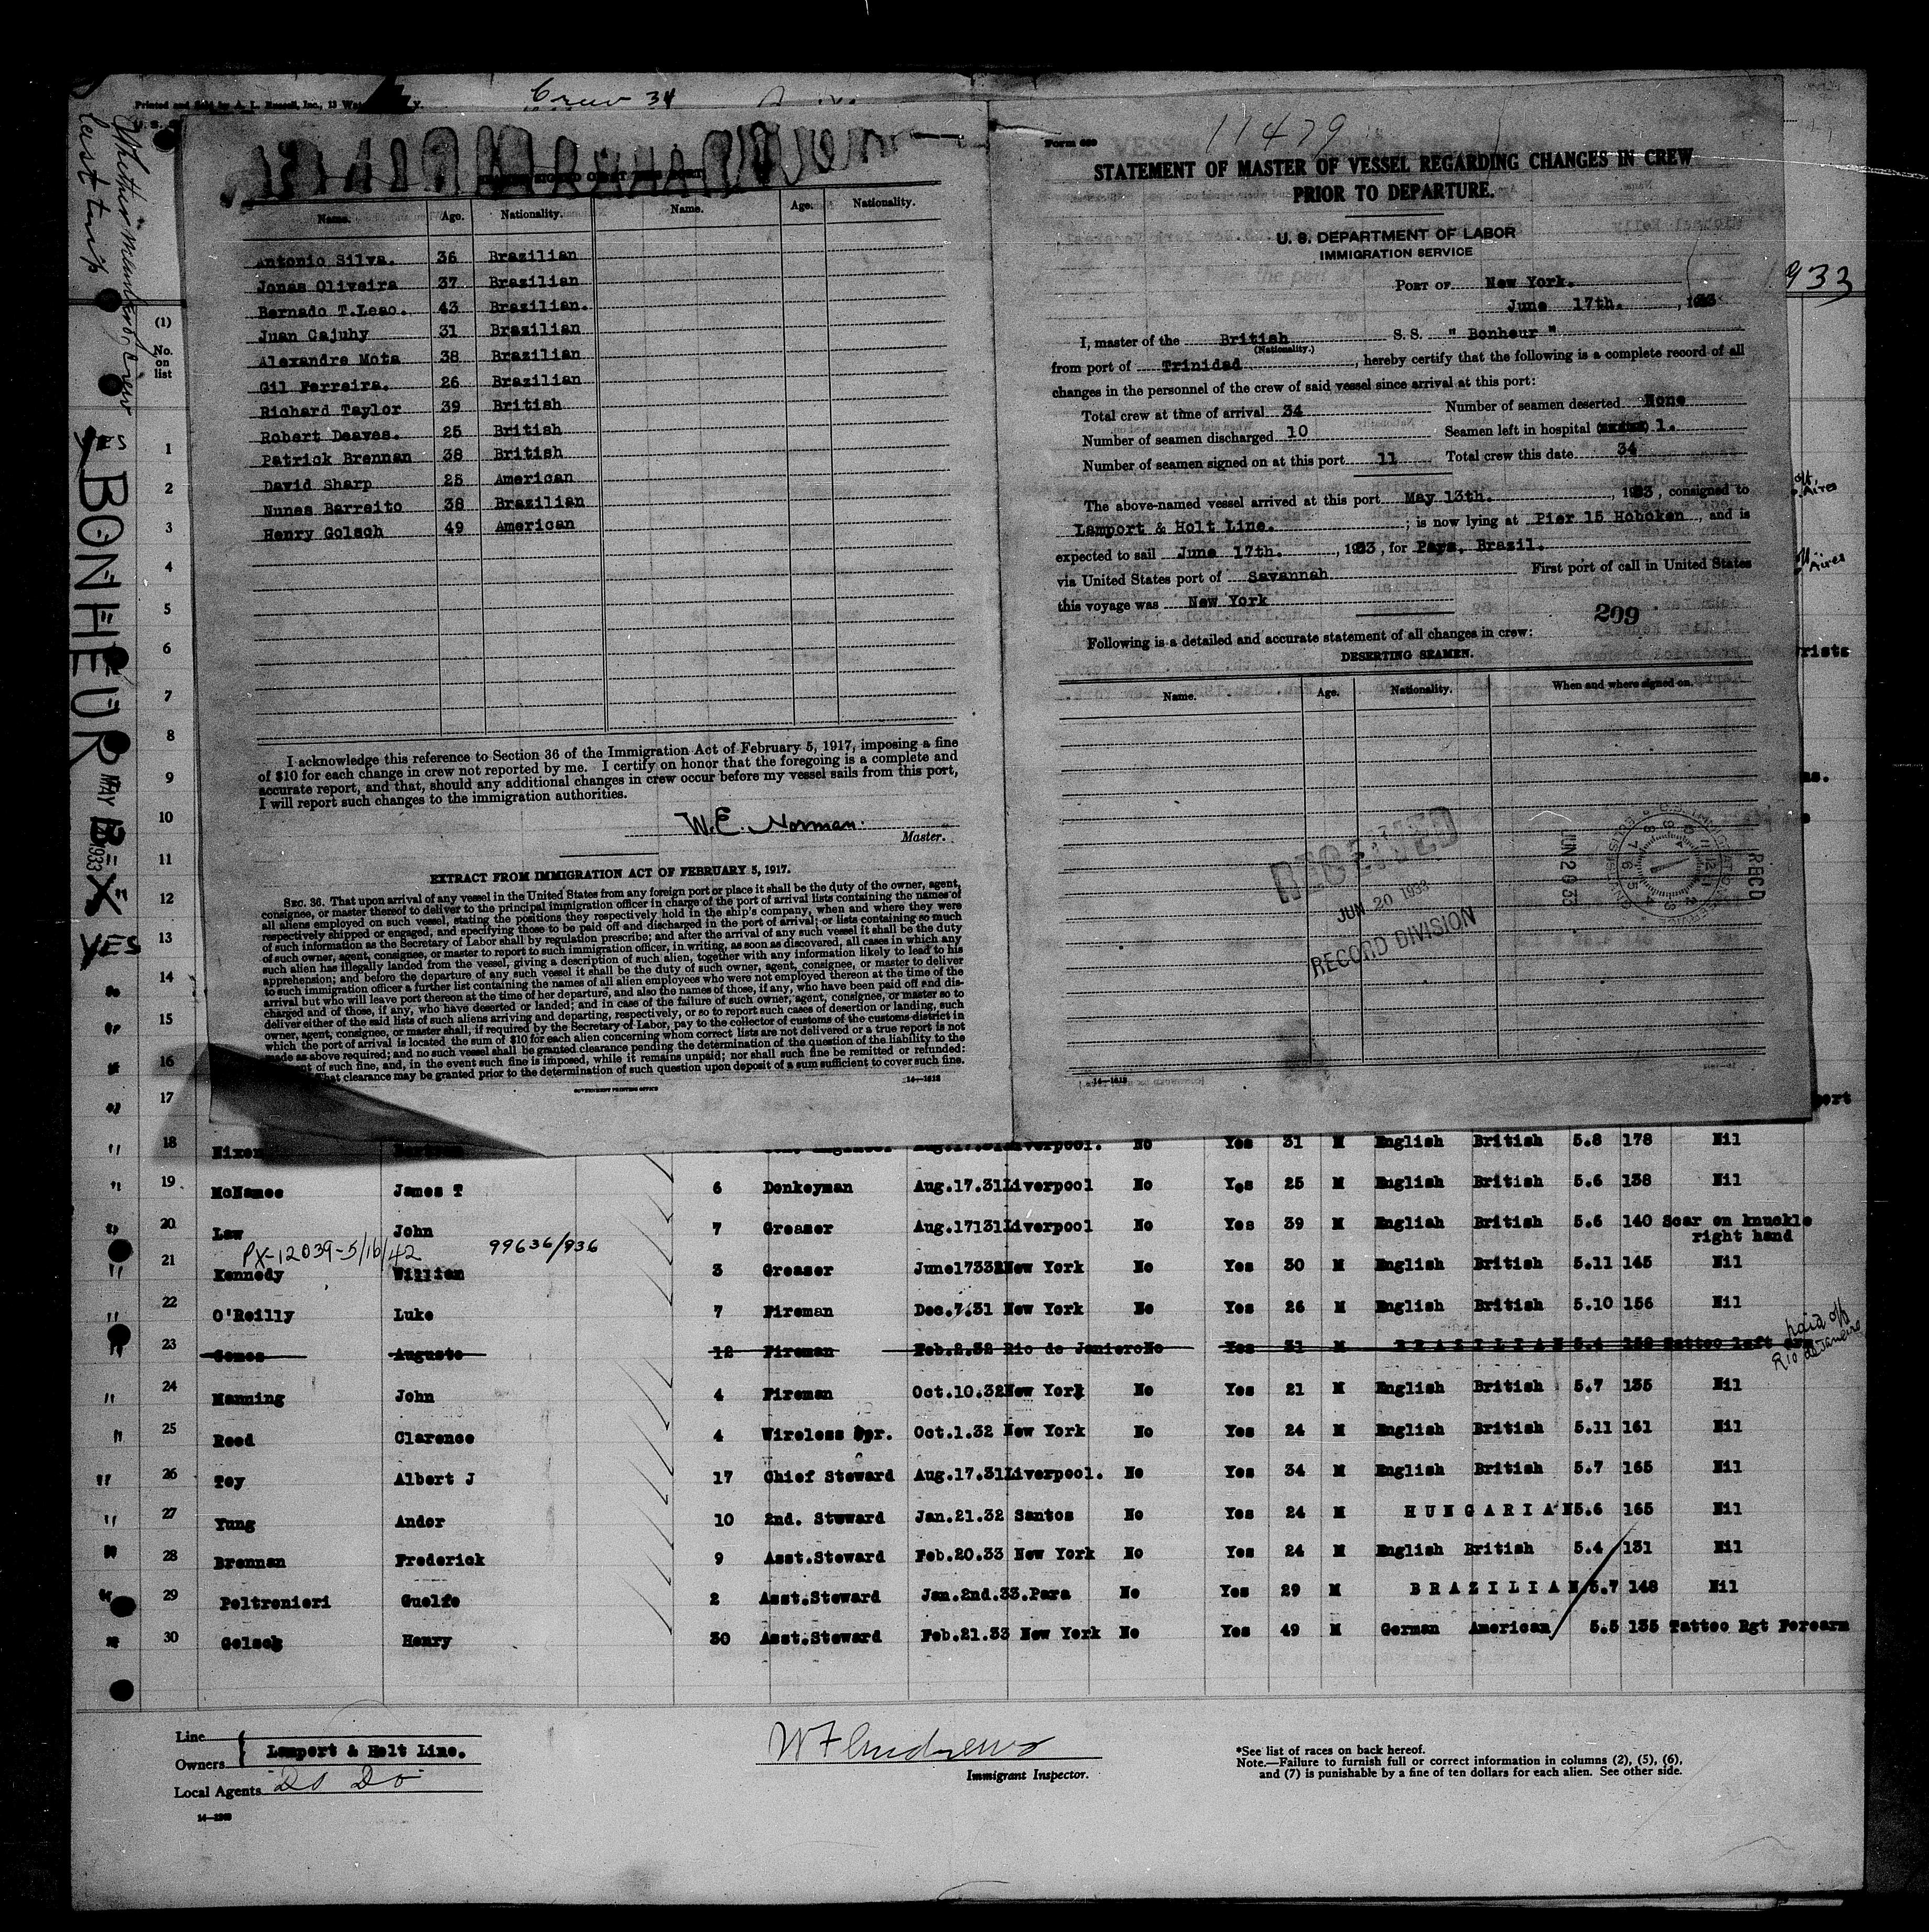 Printed and Sold by A. L. Russell, Inc., 13 Wat
Crew 34
Whether member of crew
last trip
933
BONHEUR MAY 1933
YES
YES
Name. Age. Nationality. Name. Age. Nationality.
Antonio Silva. 36 Brazilian
Jonas Oliveira 37 Brazilian
Bernado T.Leao. 43 Brazilian.
Juan Cajuhy 31 Brazilian
Alexandre Mota 38 Brazilian
Gil Ferreira. 26 Brazilian
Richard Taylor 39 British
Robert Deaves. 25 British
Patrick Brennan 38 British
David Sharp 25 American
Nunes Barreito 38 Brazilian
Henry Golsch 49 American
I acknowledge this reference to Section 36 of the Immigration Act of February 5, 1917, imposing a fine
of $10 for each change in crew not reported by me. I certify on honor that the foregoing is a complete and
accurate report, and that, should any additional changes in crew occur before my vessel sails from this port,
I will report such changes to the immigration authorities.
W.E. Norman.
Master.
EXTRACT FROM IMMIGRATION ACT OF FEBRUARY 5, 1917.
SEC. 36. That upon arrival of any vessel in the United States from any foreign port or place it shall be the duty of the owner, agent,
consignee, or master thereof to deliver to the principal immigration officer in charge of the port of arrival lists containing the names of
all aliens employed on such vessel, stating the positions they respectively hold in the ship's company, when and where they were
respectively shipped or engaged, and specifying those to be paid off and discharged in the port of arrival; or lists containing so much
of such information as the Secretary of Labor shall by regulation prescribe; and after the arrival of any such vessel it shall be the duty
of such owner, agent, consignee, or master to report to such immigration officer, in writing, as soon as discovered, all cases in which any
such alien has illegally landed from the vessel, giving a description of such alien, together with any information likely to lead to his
apprehension; and before the departure of any such vessel it shall be the duty of such owner, agent, consignee, or master to deliver
to such immigration officer a further list containing the names of all alien employees who were not employed thereon at the time of the
arrival but who will leave port thereon at the time of her departure, and also the names of those, if any, who have been paid off and dis-
charged and of those, if any, who have deserted or landed; and in case of the failure of such owner, agent, consignee, or master so to
deliver either of the said lists of such aliens arriving and departing, respectively, or so to report such cases of desertion or landing, such
owner, agent, consignee, or master shall, if required by the Secretary of Labor, pay to the collector of customs of the customs district in
which the port of arrival is located the sum of $10 for each alien concerning whom correct lists are not delivered or a true report is not
made as above required; and no such vessel shall be granted clearance pending the determination of the question of the liability to the
of such fine, and, in the event such fine is imposed, while it remains unpaid; nor shall such fine be remitted or refunded:
That clearance may be granted prior to the determination of such question upon deposit of a sum sufficient to cover such fine.
GOVERNMENT PRINTING OFFICE 14—1613
Form 689
11479
STATEMENT OF MASTER OF VESSEL REGARDING CHANGES IN CREW
PRIOR TO DEPARTURE.
U. S. DEPARTMENT OF LABOR
IMMIGRATION SERVICE
PORT OF New York.
June 17th. , 1933
I, master of the British S. S. " Bonheur "
(Nationality.)
from port of Trinidad , hereby certify that the following is a complete record of all
changes in the personnel of the crew of said vessel since arrival at this port:
Total crew at time of arrival 34 Number of seamen deserted None
Number of seamen discharged 10 Seamen left in hospital 1.
Number of seamen signed on at this port 11 Total crew this date 34
The above-named vessel arrived at this port May 13th. , 1933, consigned to
Lamport & Holt Line. ; is now lying at Pier 15 Hoboken , and is
expected to sail June 17th. , 1933, for Para, Brazil.
via United States port of Savannah First port of call in United States
this voyage was New York
209
Following is a detailed and accurate statement of all changes in crew:
DESERTING SEAMEN.
Name. Age. Nationality. When and where signed on.
RECEIVED
JUN 20 1933
RECORD DIVISION
JUN 20 33
RECD
14—1613
(1)
No.
on
list
1
2
3
4
5
6
7
8
9
10
11
12
13
14
15
16
17
18 Nixon Liverpool. No Yes 31 M English British 5.8 178 Nil
19 McNamee James T 6 Donkeyman Aug.17.31 Liverpool No Yes 25 M English British 5.6 138 Nil
20 Law John 7 Greaser Aug.17131 Liverpool No Yes 39 M English British 5.6 140 Scar on knuckle
right hand
PX-12039-5/16/42 99636/936
21 Kennedy William 3 Greaser June17332 New York No Yes 30 M English British 5.11 145 Nil
22 O'Reilly Luke 7 Fireman Dec.7.31 New York No Yes 26 M English British 5.10 156 Nil
23 Gomes Augusto 12 Fireman Feb.2.32 Rio de Janiero No Yes 31 M BRAZILIAN 5.4 139 Tattoo left arm
paid off
Rio de Janeiro
24 Manning John 4 Fireman Oct.10.32 New York No Yes 21 M English British 5.7 135 Nil
25 Reed Clarence 4 Wireless Opr. Oct.1.32 New York No Yes 24 M English British 5.11 161 Nil
26 Toy Albert J 17 Chief Steward Aug.17.31 Liverpool. No Yes 34 M English British 5.7 165 Nil
27 Yung Andor 10 2nd. Steward Jan.21.32 Santos No Yes 24 M HUNGARIAN 5.6 165 Nil
28 Brennan Frederick 9 Asst.Steward Feb.20.33 New York No Yes 24 M English British 5.4 131 Nil
29 Peltrenieri Guelfo 2 Asst.Steward Jan.2nd.33.Para No Yes 29 M BRAZILIAN 5.7 148 Nil
30 Golsch Henry 30 Asst.Steward Feb.21.33 New York No Yes 49 M German American 5.5 135 Tattoo Rgt Forearm
Line
Owners Lamport & Holt Line.
Local Agents Do Do
W F Andrews
Immigrant Inspector.
*See list of races on back hereof.
Note.—Failure to furnish full or correct information in columns (2), (5), (6),
and (7) is punishable by a fine of ten dollars for each alien. See other side.